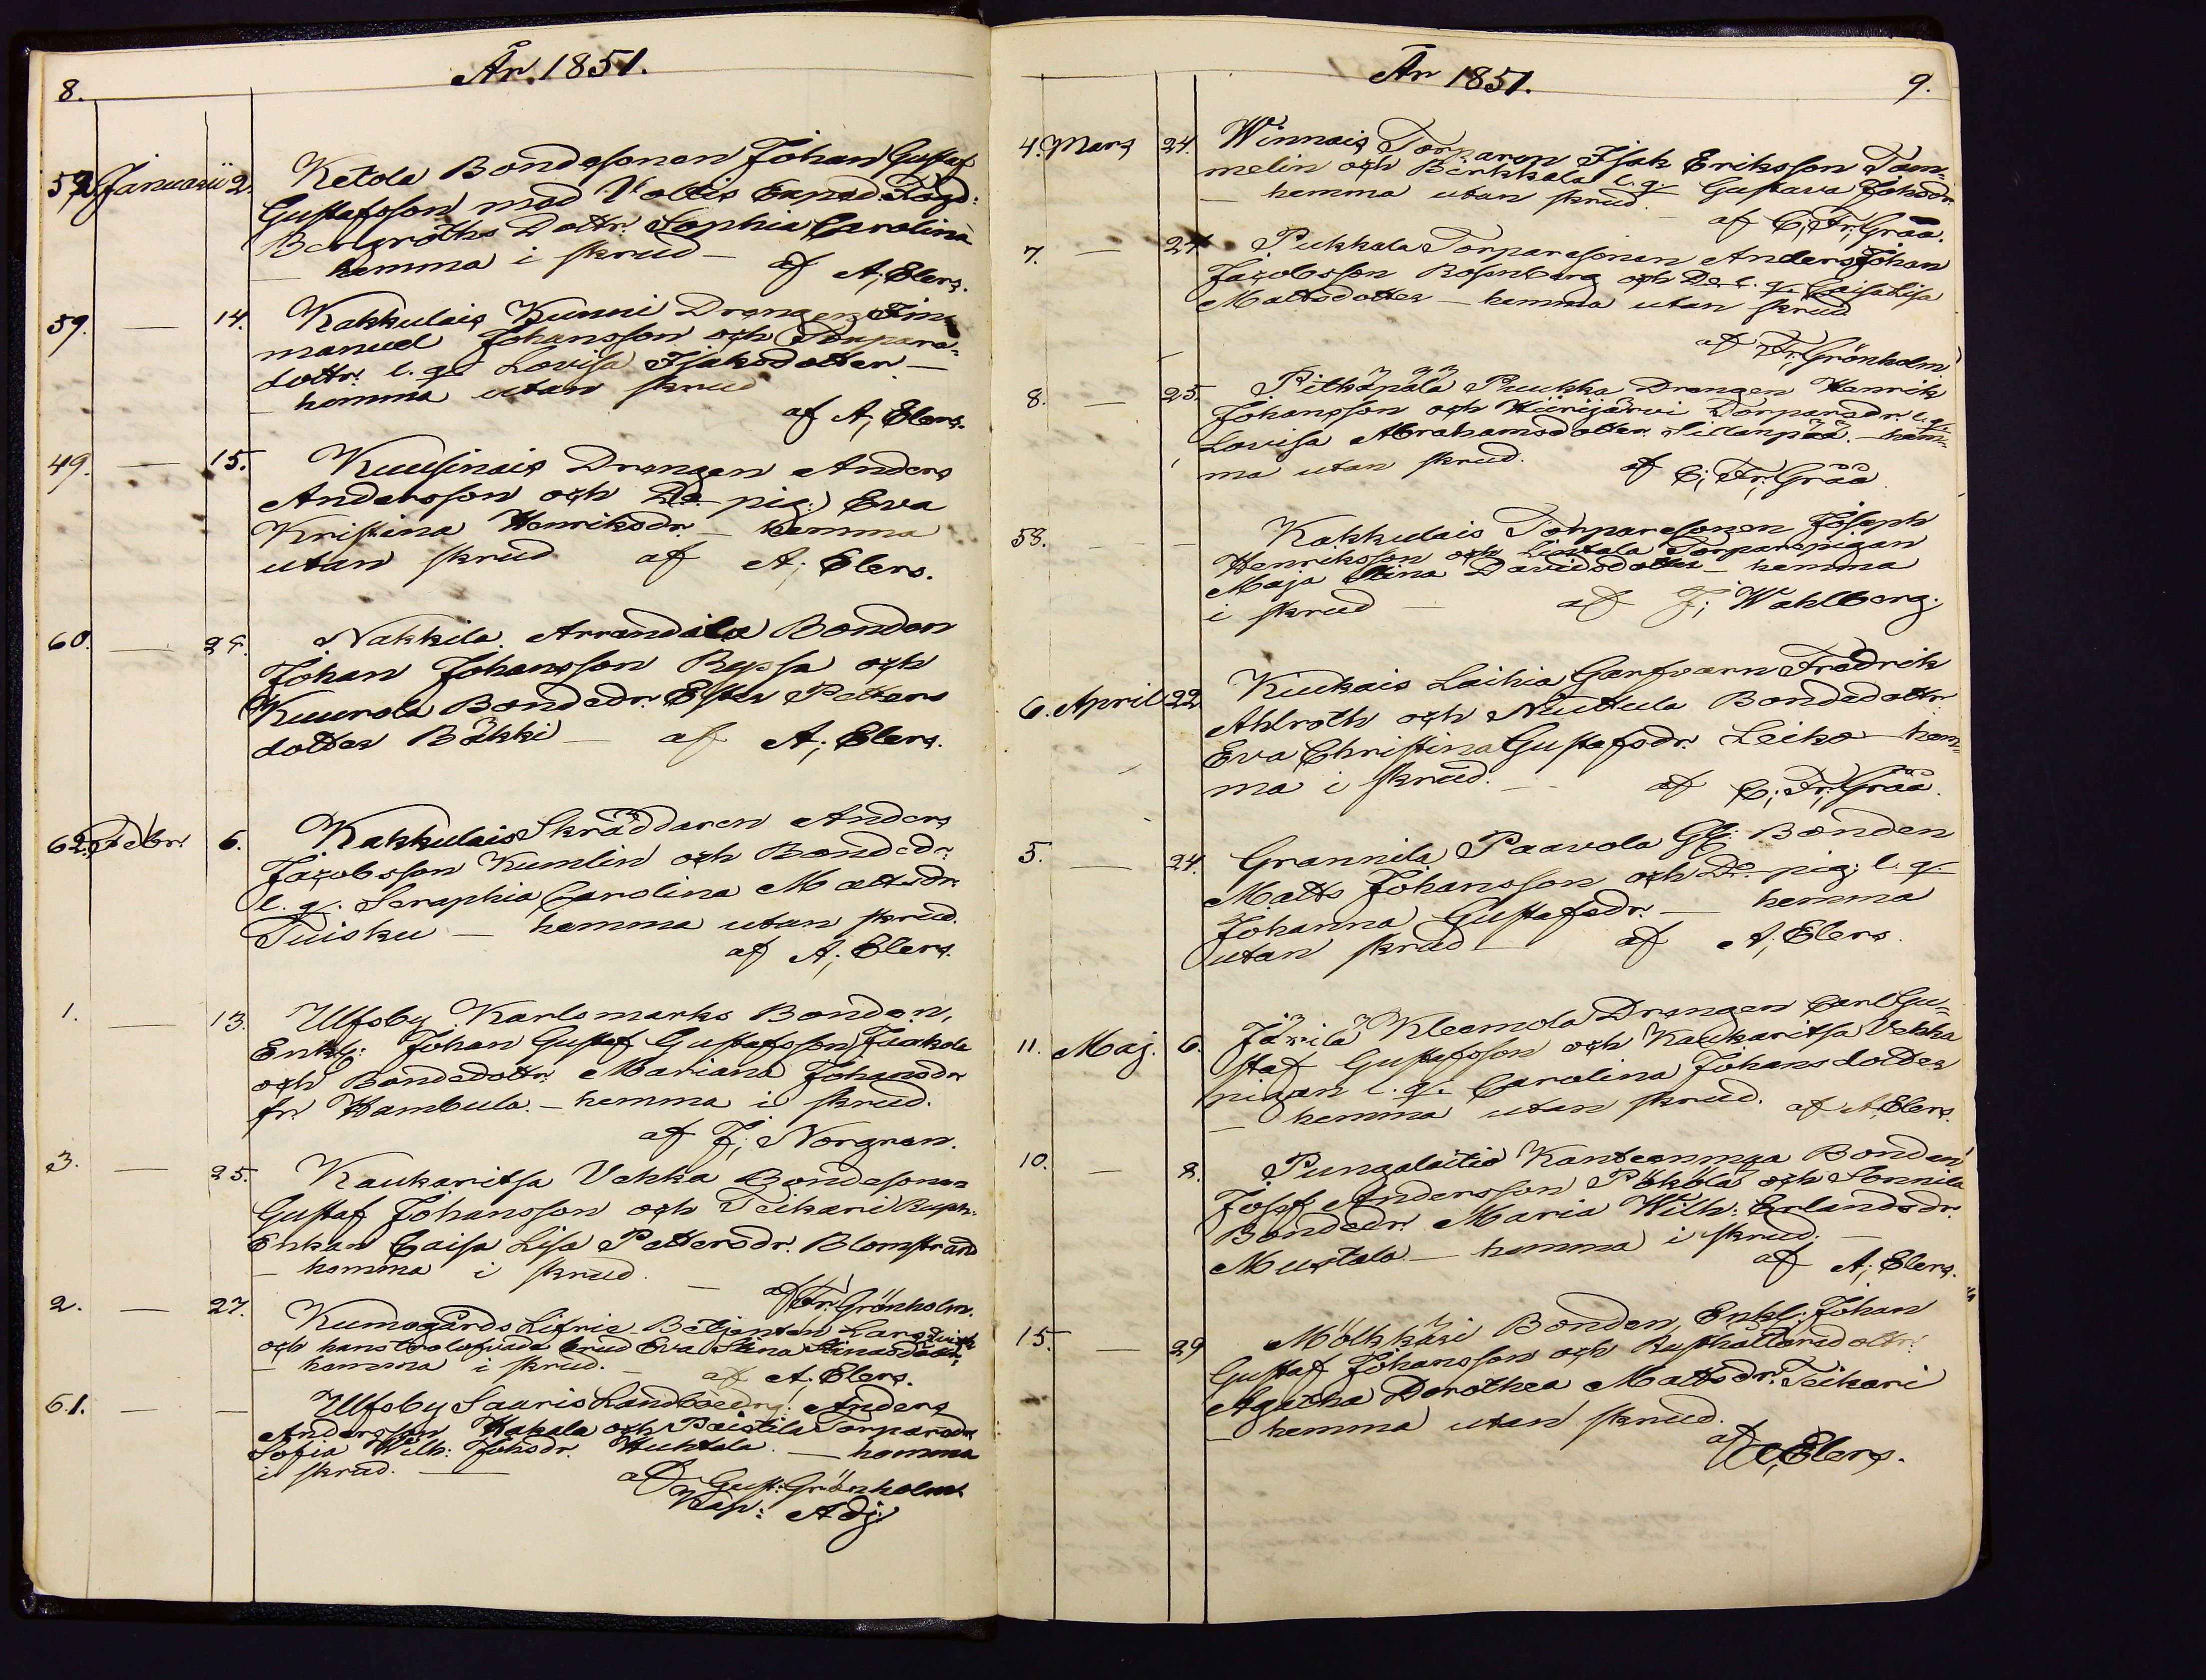 8.
År. 1851.
52. Januarii 2. Ketola Bondesonen Johan Gustaf
Gustafsson med Voltis Exped: Fogd:
Bergroths Dottr. Sophia Carolina
— hemma i skrud — af A; Elers.
59. — 14. Kakkulais Kunni Drengen Im-
manuel Johansson och Torpare-
dottr. l. q. Lovisa Isaksdotter —
— hemma utan skrud
af A; Elers.
49. — 15. Kuusinais Drengen Anders
Andersson och Do pig:) Eva
Kristina Henriksdr. — hemma
utan skrud af A; Elers.
60. — 29. Nakkila Arrandila Bonden
Johan Johansson Ryssa och
Kuurola Bondedr. Ester Petters
dotter Bäkki — af A; Elers.
62. Febr. 6. Kakkulais Skräddaren Anders
Jacobsson Kumlin och Bondedr.
l. q. Seraphia Carolina Mattsdr.
Tuisku — hemma utan skrud.
af A; Elers.
1. — 13. Ulfsby Karlsmarks Bonden,
Enkl: Johan Gustaf Gustafsson Juakola
och Bondedottr. Mariana Johansdr
fr. Hambula. — hemma i skrud.
af J; Norgren.
3. — 25. Kaukaritsa Vehka Bondesonen
Gustaf Johansson och Teikari Rusth:
Enkan Caisa Lisa Pettersdr. Blomstrand
— hemma i skrud. —
af Fr: Grönholm.
2. — 27. Kumogårds Lifrie Betjenten Lars
och hans trolofvade brud Eva Stina
— hemma i skrud. — af A; Elers.
61. — — Ulfsby Sauris Landboedrg: Anders
Andersson Hakala och Paistila Torparedr
Sofia Wilh: Johsdr. Huhtala. — hemma
i skrud. —
af Gust: Grönholm
Kap: Adj:
År 1851.
9.
4. Mars 24. Winnais Torparen Isak Eriksson Tam-
melin och Birkkala l. q. Gustava Johsdr.
— hemma utan skrud. — af C; Fr; Gråå.
7. — 24 Pukkala Torparesonen Anders Johan
Jacobsson Rosenberg och Do l. q. Caisa Lisa
Mattsdotter — hemma utan skrud
af Fr: Grönholm
8. — 25. Pitkäpälä Puukka Drengen Henrik
Johansson och Hiirijärvi Torparedr. l. q.
Lovisa Abrahamsdotter Sillanpää. — hem-
ma utan skrud. af C; Fr; Gråå
58. — — Kakkulais Torparesonen Joseph
Henriksson och Lietala Torparepigan
Maja Stina Davidsdotter — hemma
i skrud — af J; Wahlberg.
6. April 22 Kiukais Laihia Garfvarn Fredrik
Ahlroth och Nuttula Bondedottr.
Eva Christina Gustafsdr. Leiko — hem-
ma i skrud. — af C; Fr; Gråå.
5. — 24. Grannila Paavola Gft: Bonden
Matts Johansson och Do. pig; l. q.
Johanna Gustafsdr. — hemma
utan skrud — af A; Elers.
11. Maj. 6. Järilä Kleemola Drengen Carl Gu-
staf Gustafsson och Kaukaritsa Vehka
pigan l. q. Carolina Johansdotter
— hemma utan skrud. af A; Elers.
10. — 8. Pungalaitio Kanteenmaa Bonden
Josef Andersson Pökölä och Sonnila
Bondedr. Maria Wilh: Erlandsdr.
Mustala — hemma i skrud. —
af A; Elers.
15. — 29 Mölkkäri Bonden, Enkl: Johan
Gustaf Johansson och Rusthållaredottr:
Agatha Dorothea Mattsdr. Teikari
— hemma utan skrud.
af A; Elers.